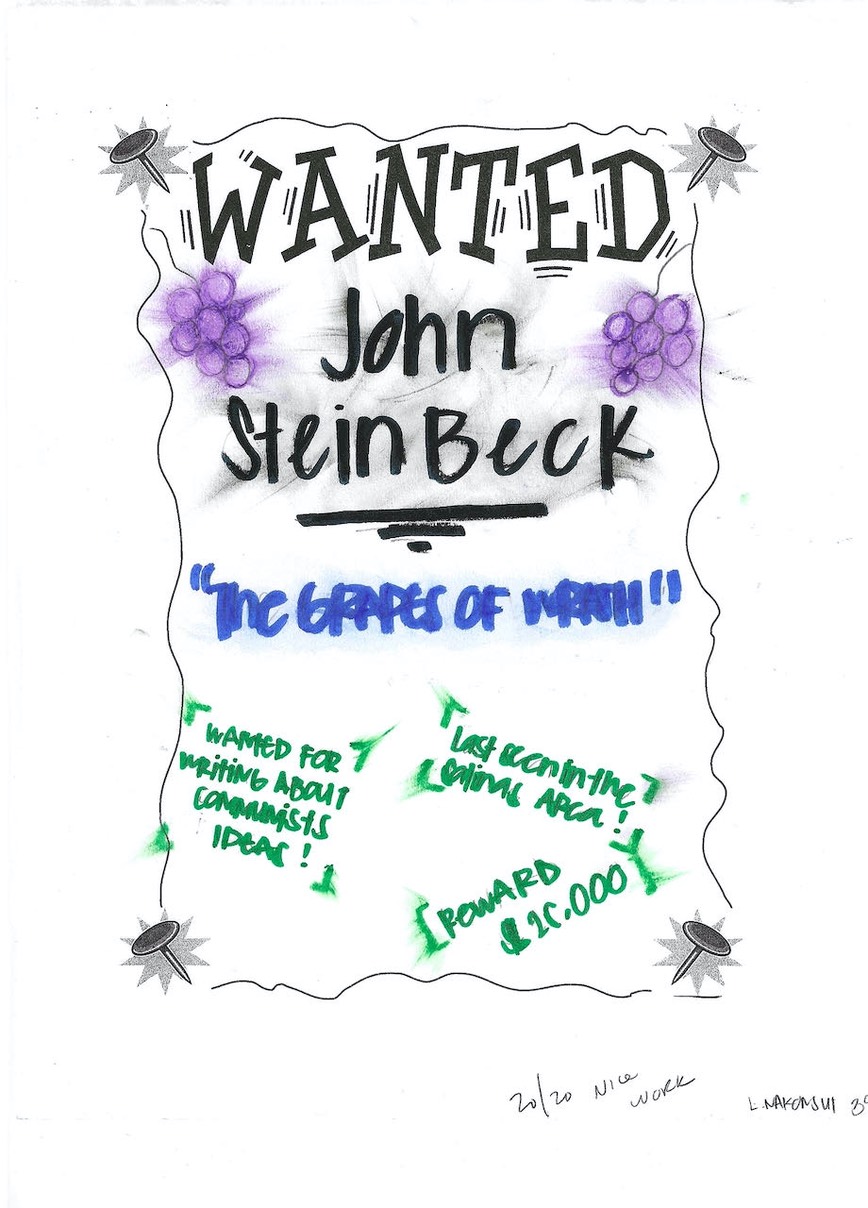 WANTED
John
SteinBeck
"The GRAPES OF WRATH"
WANTED FOR
WRITING ABOUT
COMMUNISTS
IDEAS!
Last seen in the
Salinas AREA!
REWARD
20/20 NICE
WORK